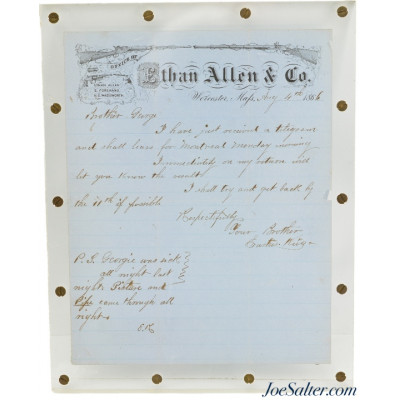 OFFICE OF
Ethan Allen & Co.
ETHAN ALLEN
S. FOREHAND
H.C. WADSWORTH
Worcester, Mass, Aug 4th 1866
Brother George
I have just received a telegram
and shall leave for Montreal Monday morning
Immediately on my return will
let you know the result
I shall try and get back by
the 11th if possible
Respectfully
Your Brother
P.S. Georgie was sick
all night last
night Picture and
Pipe came through all
right.
JoeSalter.com